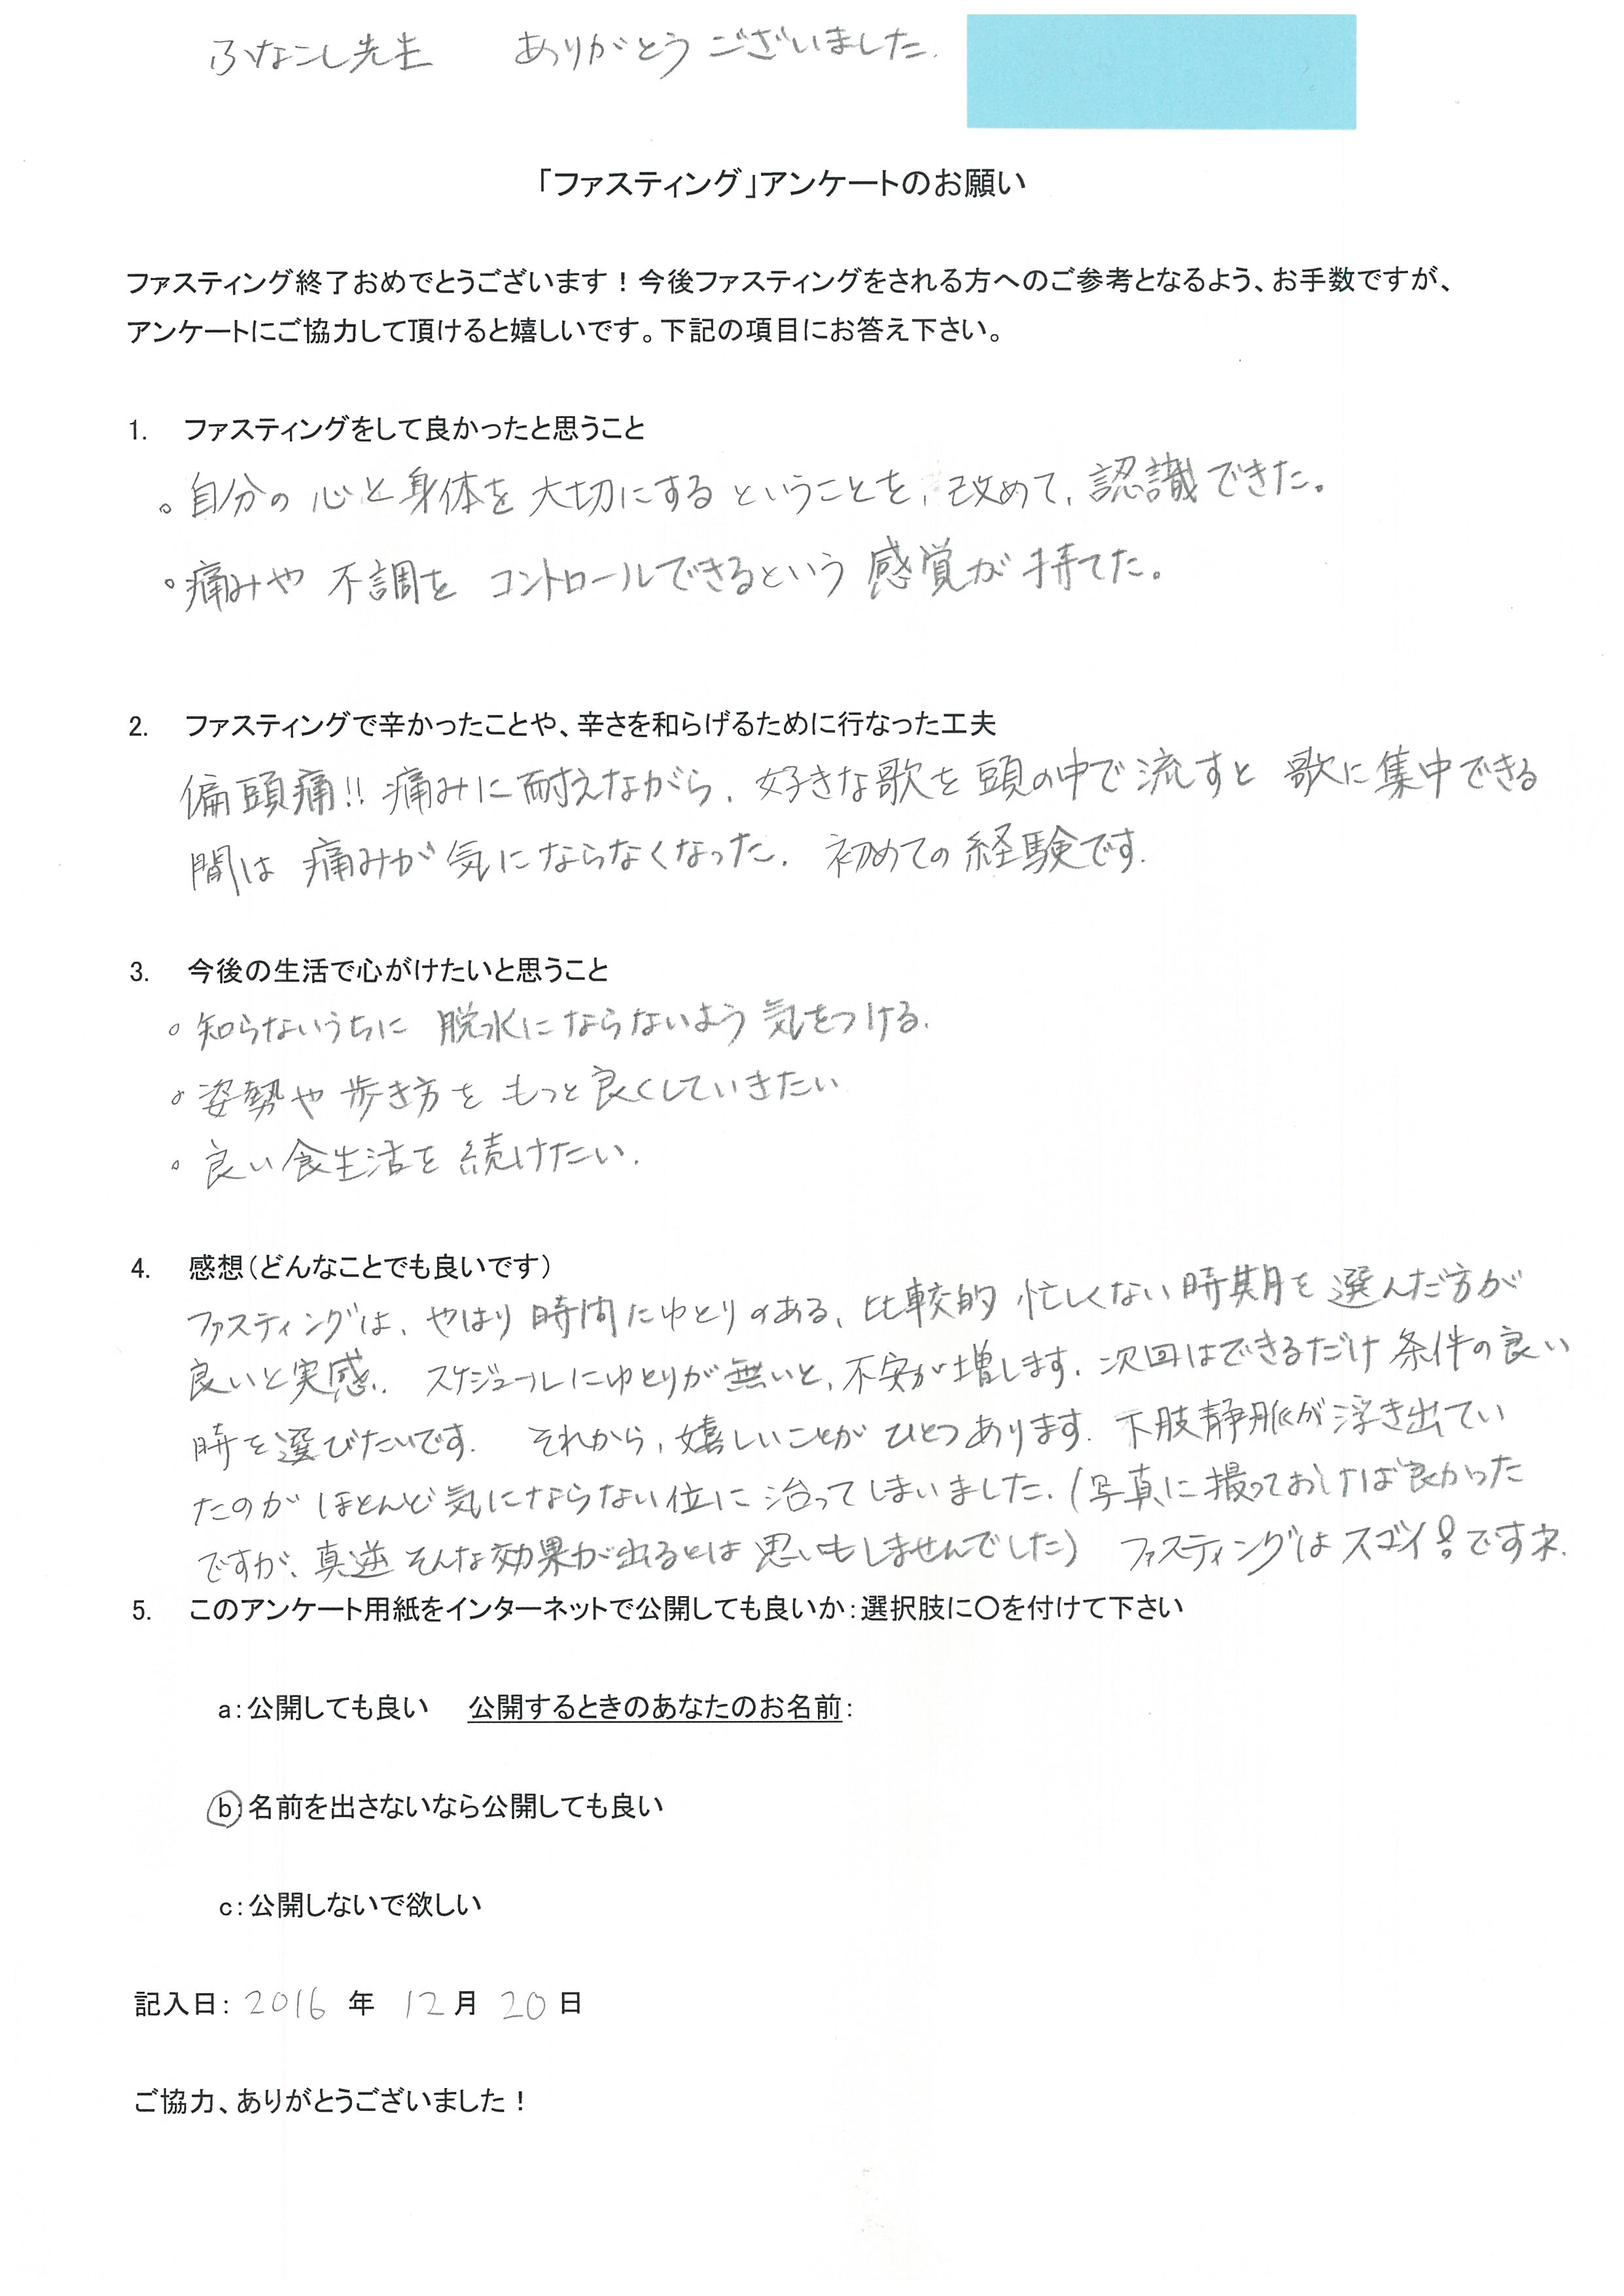 ふなこし先生 ありがとうございました.
「ファスティング」アンケートのお願い
ファスティング終了おめでとうございます！今後ファスティングをされる方へのご参考となるよう、お手数ですが、
アンケートにご協力して頂けると嬉しいです。下記の項目にお答え下さい。
1. ファスティングをして良かったと思うこと
。自分の心と身体を大切にするということを、改めて、認識できた。
。痛みや不調をコントロールできるという感覚が持てた。
2. ファスティングで辛かったことや、辛さを和らげるために行なった工夫
偏頭痛!! 痛みに耐えながら、好きな歌を頭の中で流すと歌に集中できる
間は痛みが気にならなくなった. 初めての経験です.
3. 今後の生活で心がけたいと思うこと
。知らないうちに脱水にならないよう気をつける.
。姿勢や歩き方をもっと良くしていきたい
。良い食生活を続けたい.
4. 感想（どんなことでも良いです）
ファスティングは、やはり時間にゆとりのある、比較的忙しくない時期を選んだ方が
良いと実感.. スケジュールにゆとりが無いと、不安が増します. 次回はできるだけ条件の良い
時を選びたいです. それから、嬉しいことがひとつあります. 下肢静脈が浮き出てい
たのがほとんど気にならない位に治ってしまいました.(写真に撮っておけば良かった
ですが、真逆そんな効果が出るとは思いもしませんでした) ファスティングはスゴイ!ですネ.
5. このアンケート用紙をインターネットで公開しても良いか：選択肢に〇を付けて下さい
a：公開しても良い 公開するときのあなたのお名前：
b：名前を出さないなら公開しても良い
c：公開しないで欲しい
記入日： 2016 年 12 月 20 日
ご協力、ありがとうございました！